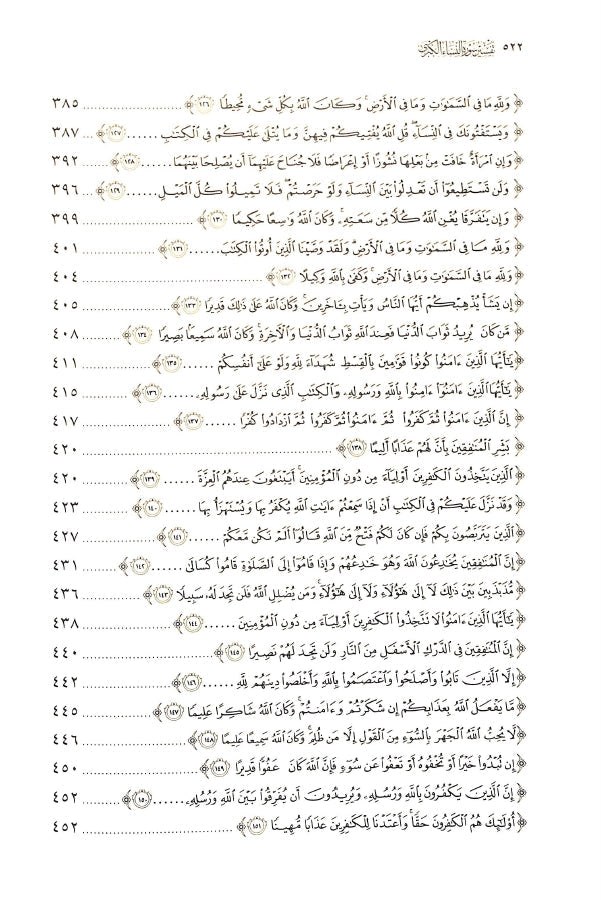 ٥٢٢ تفسير سورة النساء الكبرى
﴿ وَلِلَّهِ مَا فِي السَّمَٰوَٰتِ وَمَا فِي الْأَرْضِ ۚ وَكَانَ اللَّهُ بِكُلِّ شَيْءٍ مُّحِيطًا ١٢٦ ﴾ ........ ٣٨٥
﴿ وَيَسْتَفْتُونَكَ فِي النِّسَاءِ ۖ قُلِ اللَّهُ يُفْتِيكُمْ فِيهِنَّ وَمَا يُتْلَىٰ عَلَيْكُمْ فِي الْكِتَٰبِ ...... ١٢٧ ﴾ ... ٣٨٧
﴿ وَإِنِ امْرَأَةٌ خَافَتْ مِنْ بَعْلِهَا نُشُوزًا أَوْ إِعْرَاضًا فَلَا جُنَاحَ عَلَيْهِمَا أَن يُصْلِحَا بَيْنَهُمَا ...... ١٢٨ ﴾ ... ٣٩٢
﴿ وَلَن تَسْتَطِيعُوا أَن تَعْدِلُوا بَيْنَ النِّسَاءِ وَلَوْ حَرَصْتُمْ ۖ فَلَا تَمِيلُوا كُلَّ الْمَيْلِ ...... ١٢٩ ﴾ ... ٣٩٦
﴿ وَإِن يَتَفَرَّقَا يُغْنِ اللَّهُ كُلًّا مِّن سَعَتِهِ ۚ وَكَانَ اللَّهُ وَٰسِعًا حَكِيمًا ١٣٠ ﴾ ........ ٣٩٩
﴿ وَلِلَّهِ مَا فِي السَّمَٰوَٰتِ وَمَا فِي الْأَرْضِ ۗ وَلَقَدْ وَصَّيْنَا الَّذِينَ أُوتُوا الْكِتَٰبَ ...... ١٣١ ﴾ ........ ٤٠١
﴿ وَلِلَّهِ مَا فِي السَّمَٰوَٰتِ وَمَا فِي الْأَرْضِ ۚ وَكَفَىٰ بِاللَّهِ وَكِيلًا ١٣٢ ﴾ ........ ٤٠٤
﴿ إِن يَشَأْ يُذْهِبْكُمْ أَيُّهَا النَّاسُ وَيَأْتِ بِـَٔاخَرِينَ ۚ وَكَانَ اللَّهُ عَلَىٰ ذَٰلِكَ قَدِيرًا ١٣٣ ﴾ ........ ٤٠٥
﴿ مَّن كَانَ يُرِيدُ ثَوَابَ الدُّنْيَا فَعِندَ اللَّهِ ثَوَابُ الدُّنْيَا وَالْـَٔاخِرَةِ ۚ وَكَانَ اللَّهُ سَمِيعًا بَصِيرًا ١٣٤ ﴾ ... ٤٠٨
﴿ يَٰٓأَيُّهَا الَّذِينَ ءَامَنُوا كُونُوا قَوَّٰمِينَ بِالْقِسْطِ شُهَدَاءَ لِلَّهِ وَلَوْ عَلَىٰ أَنفُسِكُمْ ...... ١٣٥ ﴾ ........ ٤١١
﴿ يَٰٓأَيُّهَا الَّذِينَ ءَامَنُوا ءَامِنُوا بِاللَّهِ وَرَسُولِهِ وَالْكِتَٰبِ الَّذِي نَزَّلَ عَلَىٰ رَسُولِهِ ...... ١٣٦ ﴾ ........ ٤١٥
﴿ إِنَّ الَّذِينَ ءَامَنُوا ثُمَّ كَفَرُوا ثُمَّ ءَامَنُوا ثُمَّ كَفَرُوا ثُمَّ ازْدَادُوا كُفْرًا ...... ١٣٧ ﴾ ........ ٤١٧
﴿ بَشِّرِ الْمُنَٰفِقِينَ بِأَنَّ لَهُمْ عَذَابًا أَلِيمًا ١٣٨ ﴾ ........ ٤٢٠
﴿ الَّذِينَ يَتَّخِذُونَ الْكَٰفِرِينَ أَوْلِيَاءَ مِن دُونِ الْمُؤْمِنِينَ ۚ أَيَبْتَغُونَ عِندَهُمُ الْعِزَّةَ ...... ١٣٩ ﴾ ........ ٤٢٠
﴿ وَقَدْ نَزَّلَ عَلَيْكُمْ فِي الْكِتَٰبِ أَنْ إِذَا سَمِعْتُمْ ءَايَٰتِ اللَّهِ يُكْفَرُ بِهَا وَيُسْتَهْزَأُ بِهَا ...... ١٤٠ ﴾ ... ٤٢٣
﴿ الَّذِينَ يَتَرَبَّصُونَ بِكُمْ فَإِن كَانَ لَكُمْ فَتْحٌ مِّنَ اللَّهِ قَالُوا أَلَمْ نَكُن مَّعَكُمْ ...... ١٤١ ﴾ ........ ٤٢٧
﴿ إِنَّ الْمُنَٰفِقِينَ يُخَٰدِعُونَ اللَّهَ وَهُوَ خَٰدِعُهُمْ وَإِذَا قَامُوا إِلَى الصَّلَوٰةِ قَامُوا كُسَالَىٰ ...... ١٤٢ ﴾ ... ٤٣١
﴿ مُّذَبْذَبِينَ بَيْنَ ذَٰلِكَ لَا إِلَىٰ هَٰٓؤُلَاءِ وَلَا إِلَىٰ هَٰٓؤُلَاءِ ۚ وَمَن يُضْلِلِ اللَّهُ فَلَن تَجِدَ لَهُ سَبِيلًا ١٤٣ ﴾ ... ٤٣٦
﴿ يَٰٓأَيُّهَا الَّذِينَ ءَامَنُوا لَا تَتَّخِذُوا الْكَٰفِرِينَ أَوْلِيَاءَ مِن دُونِ الْمُؤْمِنِينَ ...... ١٤٤ ﴾ ........ ٤٣٨
﴿ إِنَّ الْمُنَٰفِقِينَ فِي الدَّرْكِ الْأَسْفَلِ مِنَ النَّارِ وَلَن تَجِدَ لَهُمْ نَصِيرًا ١٤٥ ﴾ ........ ٤٤٠
﴿ إِلَّا الَّذِينَ تَابُوا وَأَصْلَحُوا وَاعْتَصَمُوا بِاللَّهِ وَأَخْلَصُوا دِينَهُمْ لِلَّهِ ...... ١٤٦ ﴾ ........ ٤٤٢
﴿ مَّا يَفْعَلُ اللَّهُ بِعَذَابِكُمْ إِن شَكَرْتُمْ وَءَامَنتُمْ ۚ وَكَانَ اللَّهُ شَاكِرًا عَلِيمًا ١٤٧ ﴾ ........ ٤٤٥
﴿ لَّا يُحِبُّ اللَّهُ الْجَهْرَ بِالسُّوءِ مِنَ الْقَوْلِ إِلَّا مَن ظُلِمَ ۚ وَكَانَ اللَّهُ سَمِيعًا عَلِيمًا ١٤٨ ﴾ ........ ٤٤٦
﴿ إِن تُبْدُوا خَيْرًا أَوْ تُخْفُوهُ أَوْ تَعْفُوا عَن سُوءٍ فَإِنَّ اللَّهَ كَانَ عَفُوًّا قَدِيرًا ١٤٩ ﴾ ........ ٤٥٠
﴿ إِنَّ الَّذِينَ يَكْفُرُونَ بِاللَّهِ وَرُسُلِهِ وَيُرِيدُونَ أَن يُفَرِّقُوا بَيْنَ اللَّهِ وَرُسُلِهِ ...... ١٥٠ ﴾ ... ٤٥٢
﴿ أُولَٰٓئِكَ هُمُ الْكَٰفِرُونَ حَقًّا ۚ وَأَعْتَدْنَا لِلْكَٰفِرِينَ عَذَابًا مُّهِينًا ١٥١ ﴾ ........ ٤٥٢